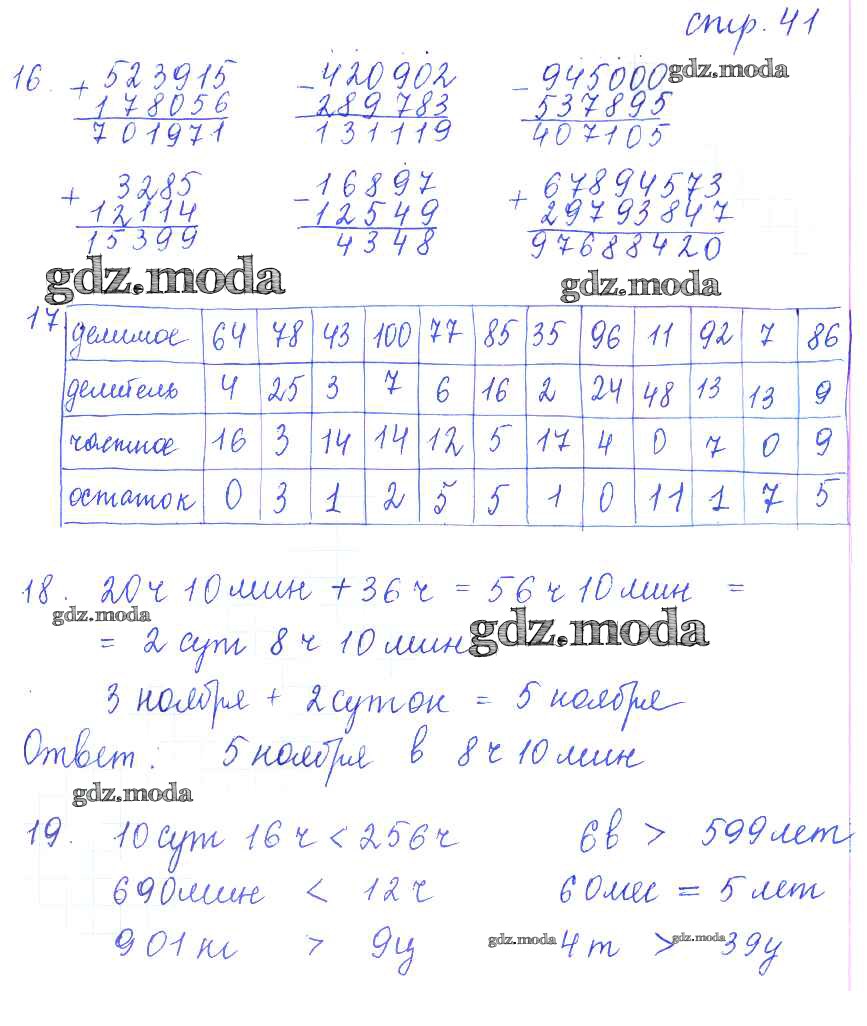 стр. 41
16. + 523915 - 420902 - 945000 gdz.moda
178056 289783 537895
701971 131119 407105
+ 3285 - 16897 + 67894573
12114 12549 29793847
15399 4348 97688420
gdz.moda gdz.moda
17 делимое 64 78 43 100 77 85 35 96 11 92 7 86
делитель 4 25 3 7 6 16 2 24 48 13 13 9
частное 16 3 14 14 12 5 17 4 0 7 0 9
остаток 0 3 1 2 5 5 1 0 11 1 7 5
18. 20ч 10мин + 36ч = 56ч 10мин =
gdz.moda gdz.moda
= 2 сут 8ч 10мин
3 ноября + 2суток = 5 ноября
Ответ: 5 ноября в 8ч 10мин
gdz.moda
19. 10сут 16ч < 256ч 6в > 599лет
690мин < 12ч 60мес = 5 лет
901кг > 9ц gdz.moda 4т > gdz.moda 39ц